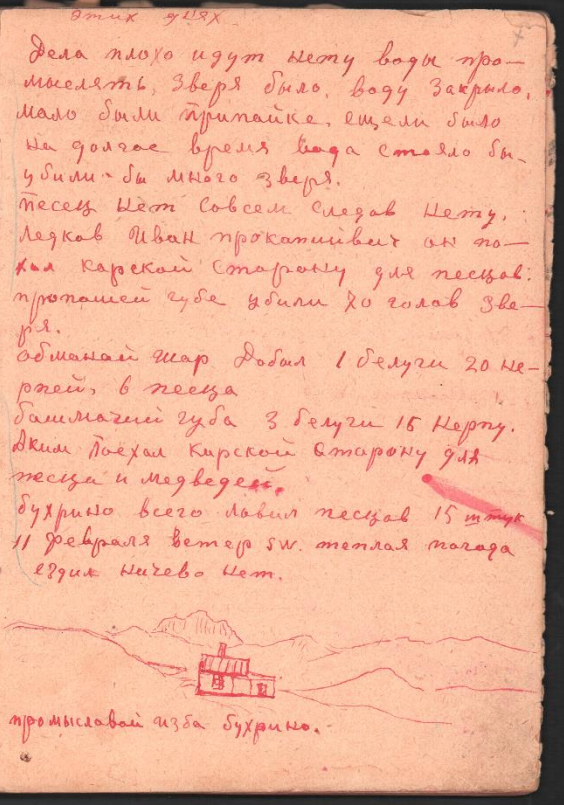 этих днях
Дела плохо идут нету воды про-
мыселять, зверя было, воду закрыло.
мало были припайке, ещели было
на долгае время вода стояло бы-
убили-бы много зверя.
песец нет совсем следов нету.
Ледков Иван прокапиевич он по-
хал карской сторону для песцов.
пропащей губе убили 70 голов зве-
ря.
обманай шар Добыл 1 белуги 20 не-
рпей, 6 песца
башмачий губа 3 белуги 16 нерпу.
Аким поехал карской сторону для
песца и медведей.
бухрино всего ловил песцов 15 штук
11 февраля ветер SW. теплая погода
ездил ничево нет.
промыславай изба бухрино.